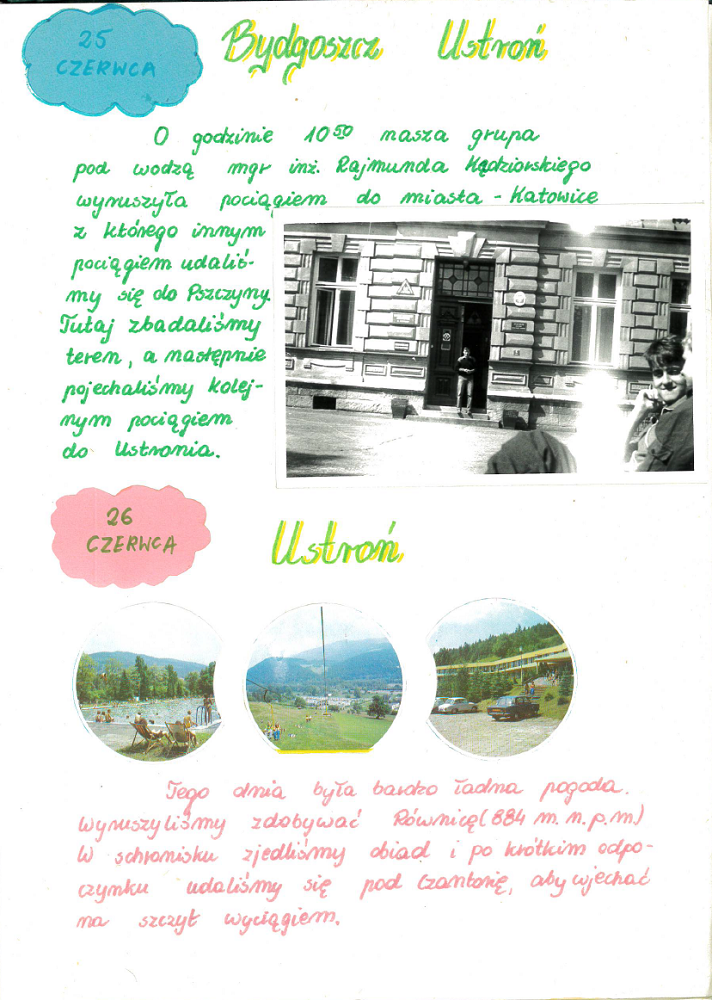 25
CZERWCA
Bydgoszcz Ustroń
O godzinie 10⁵⁰ nasza grupa
pod wodzą mgr inż. Rajmunda Kędziorskiego
wyruszyła pociągiem do miasta - Katowice
z którego innym
pociągiem udaliś-
my się do Pszczyny.
Tutaj zbadaliśmy
teren, a następnie
pojechaliśmy kolej-
nym pociągiem
do Ustronia.
26
CZERWCA
Ustroń
Tego dnia była bardzo ładna pogoda.
Wyruszyliśmy zdobywać Równicę (884 m.n.p.m)
W schronisku zjedliśmy obiad i po krótkim odpo-
czynku udaliśmy się pod Czantorię, aby wjechać
na szczyt wyciągiem.